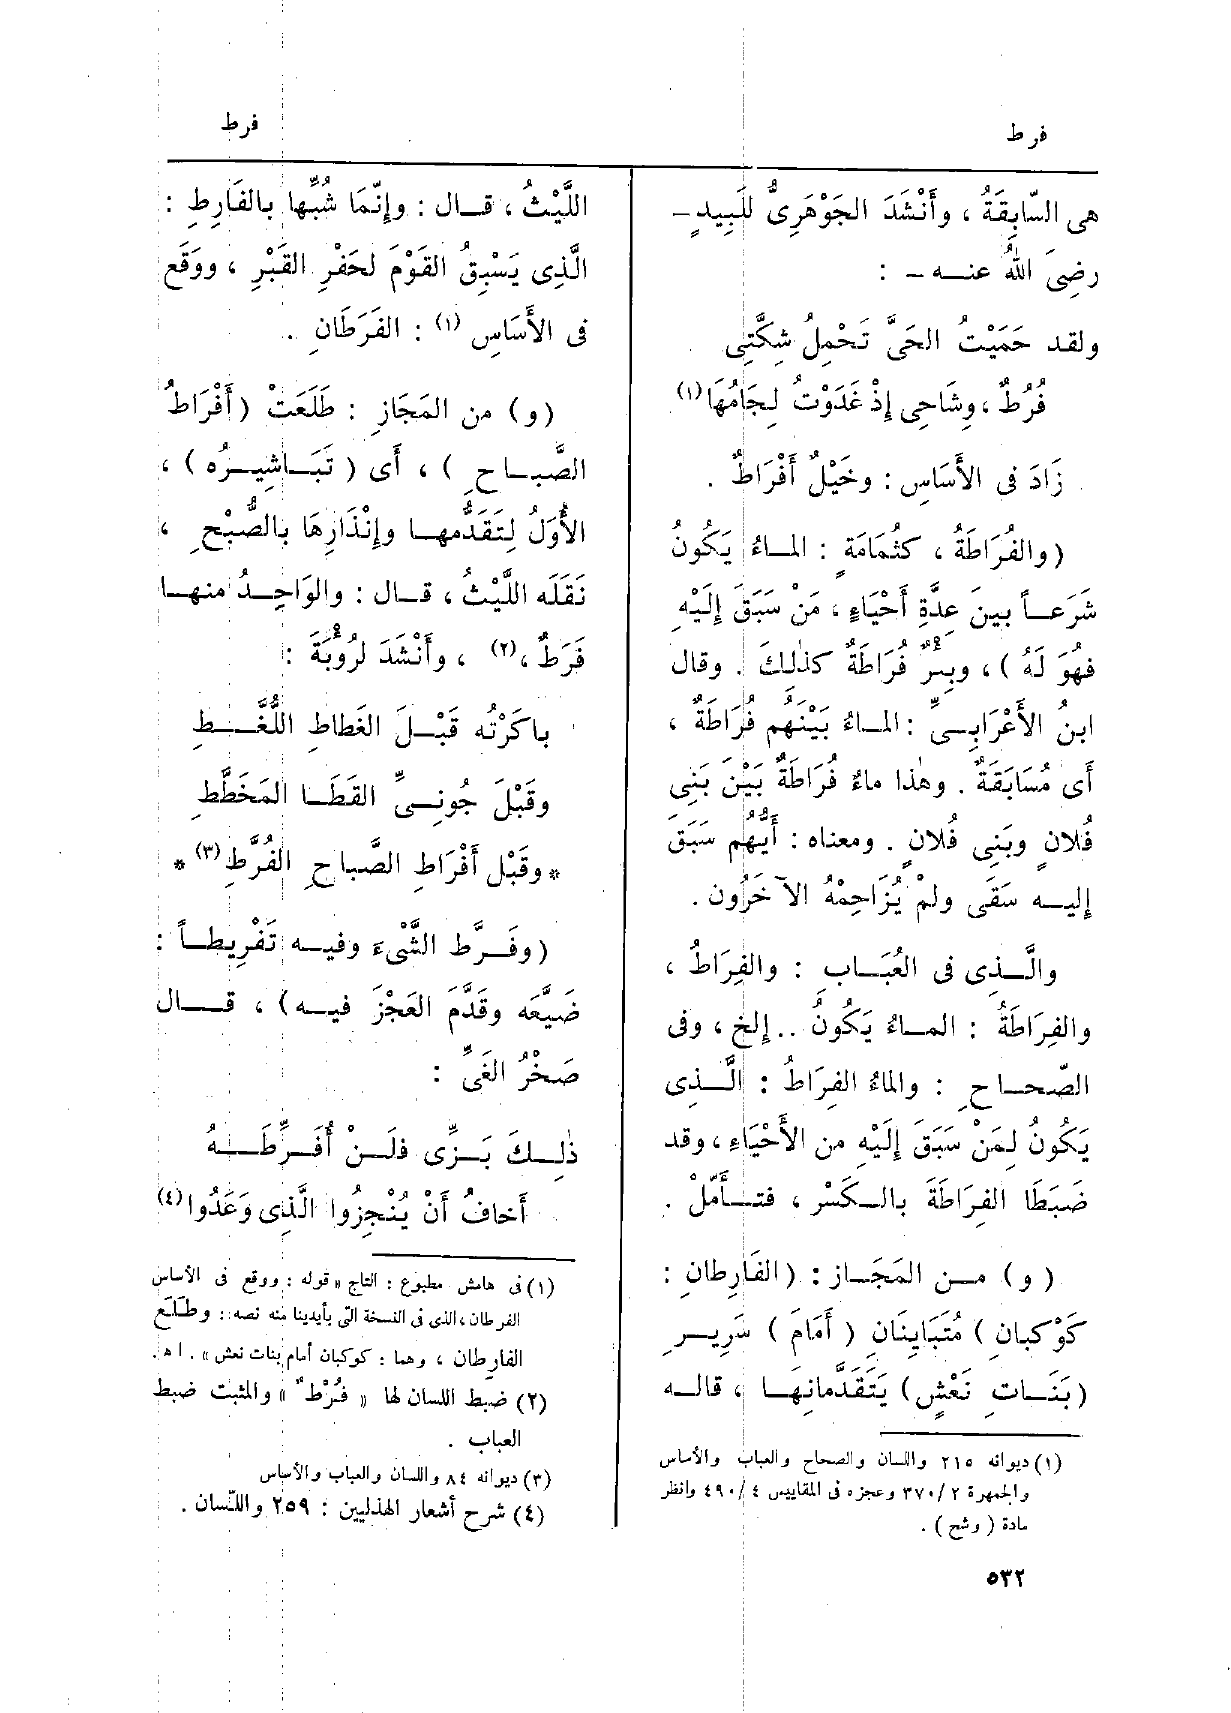 فرط
فرط
هى السّابِقَةُ ، وأَنْشَدَ الجَوْهَرِىُّ للَبِيدٍ ـ
رضِىَ اللهُ عنـــه ـ :
ولقد حَمَيْتُ الحَىَّ تَحْمِلُ شِكَّتِى
فُرُطٌ ، وِشَاحِى إِذْ غَدَوْتُ لِجَامُهَا (١)
زَادَ فى الأَسَاسِ : وخَيْلٌ أَفْرَاطٌ .
(والفُرَاطَةُ ، كثُمَامَةٍ : المــاءُ يَكُونُ
شَرَعــاً بينَ عِدَّةِ أَحْيَاءٍ ، مَنْ سَبَقَ إِلَيْهِ
فهُوَ لَهُ ) ، وبِئْرٌ فُرَاطَةٌ كذٰلِكَ . وقال
ابنُ الأَعْرَابِــىِّ : المــاءُ بَيْنَهُم فُرَاطَةٌ ،
أَى مُسَابَقَةٌ . وهٰذا ماءٌ فُرَاطَةٌ بَيْنَ بَنِى
فُلانٍ وبَنِى فُلانٍ . ومعناه : أَيُّهُم سَبَقَ
إِليــه سَقَى ولمْ يُزَاحِمْهُ الآخَرُون .
والَّــذِى فى العُبَــابِ : والفِرَاطُ ،
والفِرَاطَةُ : المــاءُ يَكُونُ .. إلخ ، وفى
الصّحــاحِ : والماءُ الفِرَاطُ : الَّــذِى
يَكُونُ لِمَنْ سَبَقَ إِلَيْهِ من الأَحْيَاءِ ، وقد
ضَبَطَا الفِرَاطَةَ بالــكَسْرِ ، فتــأَمَّلْ .
(و) مــن المَجَــازِ : (الفَارِطَانِ :
كَوْكَبانِ ) مُتَبَايِنَانِ (أَمَامَ ) سَرِيــرِ
(بَنَــاتِ نَعْشٍ) يَتَقَدَّمانِهَــا ، قالــه
(١) ديوانه ٢١٥ واللسان والصحاح والعباب والأساس
والجمهرة ٣٧٠/٢ وعجزه فى المقاييس ٤٩٠/٤ وانظر
مادة (وشح) .
٥٣٢
اللَّيْثُ ، قــال : وإِنَّمَا شُبِّها بالفَارِطِ :
الَّذِى يَسْبِقُ القَوْمَ لحَفْرِ القَبْرِ ، ووقَع
فى الأَسَاسِ (١) : الفَرَطَانِ .
(و) من المَجَازِ : طَلَعَتْ (أَفْرَاطُ
الصَّبــاحِ ) ، أَى ( تَبَــاشِيــرُه ) ،
الأُوَلُ لِتَقَدُّمهــا وإِنْذَارِهَا بالصُّبْحِ ،
نَقَلَه اللَّيْثُ ، قــال : والوَاحِــدُ منهــا
فَرَطٌ ،(٢) ، وأَنْشَدَ لرُؤْبَةَ :
باكَرْتُه قَبْــلَ الغَطاطِ اللُّغَّــطِ
وقَبْلَ جُونِــىِّ القَطَــا المَخَطَّطِ
* وقَبْل أَفْرَاطِ الصَّباحِ الفُرَّطِ (٣) *
(وفَــرَّط الشَّىْءَ وفيــه تَفْرِيطــاً :
ضَيَّعَه وقَدَّمَ العَجْزَ فيــه) ، قــال
صَخْرُ الغَىِّ :
ذٰلِــكَ بَــزِّى فلَــنْ أُفَــرِّطَــهُ
أَخافُ أَنْ يُنْجِزُوا الَّذِى وَعَدُوا (٤)
(١) فى هامش مطبوع : التاج «قوله : ووقع فى الأساس
الفرطان ، الذى فى النسخة التى بأيدينا منه نصه : وطَلَع
الفارِطان ، وهما : كوكبان أمام بنات نعش» . اه .
(٢) ضبط اللسان لها « فُرْط ٌ » والمثبت ضبط
العباب .
(٣) ديوانه ٨٤ واللسان والعباب والأساس
(٤) شرح أشعار الهذليين : ٢٥٩ واللّسان .